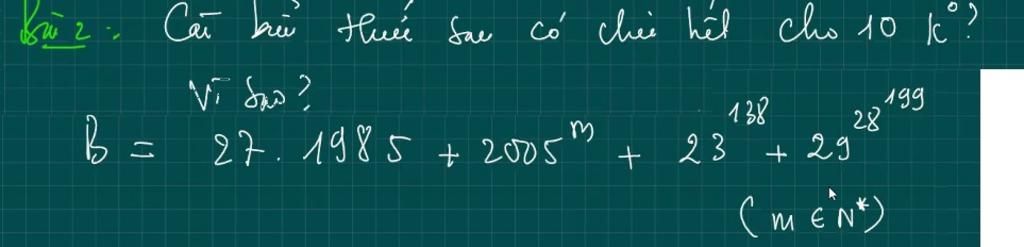 Bài 2: Các biểu thức sau có chia hết cho 10 k°?
Vì sao?
B = 27. 1985 + 2005^m + 23^138 + 29^28^199
(m ∈ N*)